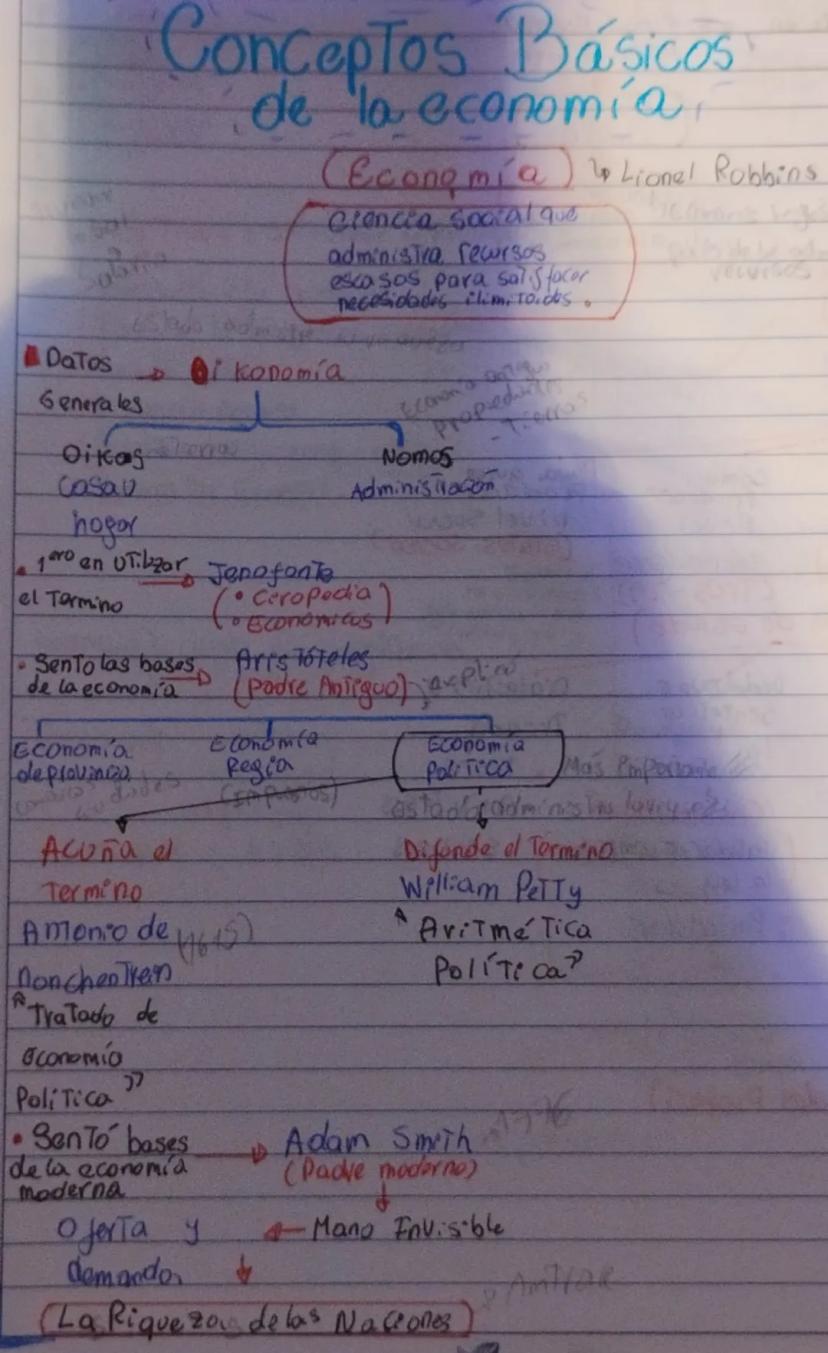 Conceptos Básicos
de la economía
(Economía) ↳ Lionel Robbins
Ciencia social que
administra recursos
escasos para satisfacer
necesidades ilimitadas.
Datos → Oikonomía
Generales
Oikos Nomos
Casa u Administración
hogar
• 1ero en utilizar → Jenofonte
el Termino (• Ciropedia
• Económicos)
• Sento las bases → Aristóteles
de la economía (Padre Antiguo) explicó
Economía Economía Economía
de provincia Regia Política Más Importante
(Impuestos)
Acuña el Difunde el Termino
Termino William Petty
Antonio de (1615) "Aritmética
Política"
"Tratado de
economía
Política"
• Sentó bases → Adam Smith 1776
de la economía (Padre moderno)
moderna
Oferta y ← Mano Invisible
demanda ↓
(La Riqueza de las Naciones)